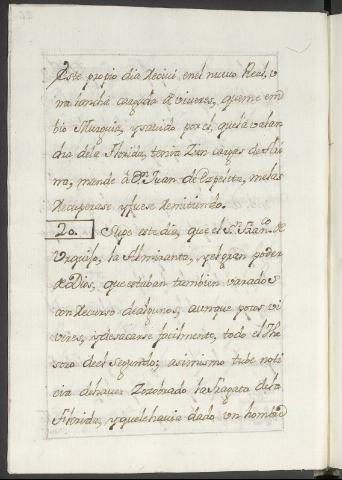 Este propio dia Recivi en el nuevo Real, v
na lancha cargada de viveres, que me em
bio Murguia, y savido por el, que la valan
dra de la Florida, tenia Zien cargas de Ari
na, mande à Dn. Juan de Ezpeleta, me las
Recuperase y fuese Remitiendo.
20. Supe este dia, que el Sn. Franco. de
Urquijo, la Almiranta, y el gran poder
de Dios, que estaban tambien varados
con Recurso de algunos, aunque pocos vi
veres, y de sacarse facilmente, todo el The
soro de el Segundo; asimismo tube noti
cia de haver Zozobrado la fragata de la
Florida, y que le havia dado un hombre